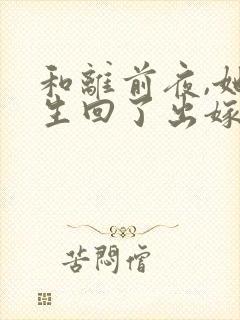 和離前夜,她
生回了出嫁
苦悶僧